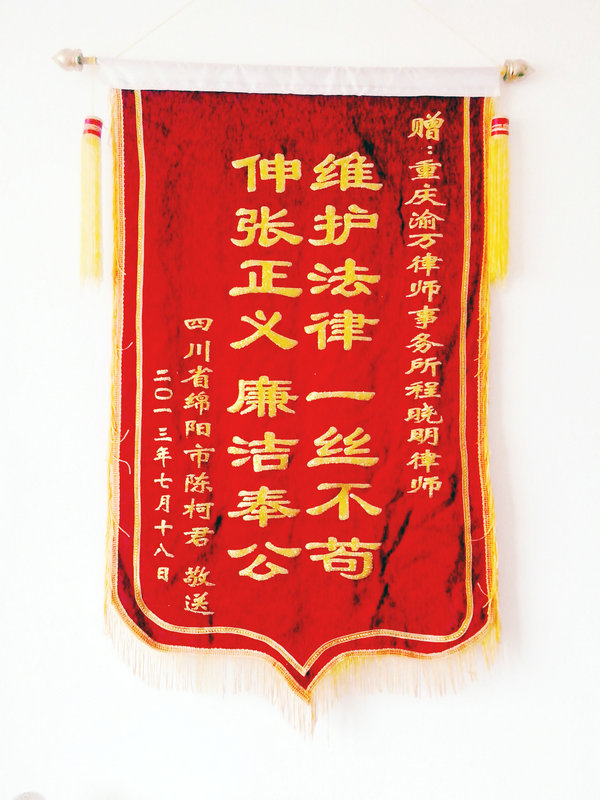 赠：重庆渝万律师事务所程晓明律师
维护法律 一丝不苟
伸张正义 廉洁奉公
四川省绵阳市陈柯君 敬送
二〇一三年七月十八日